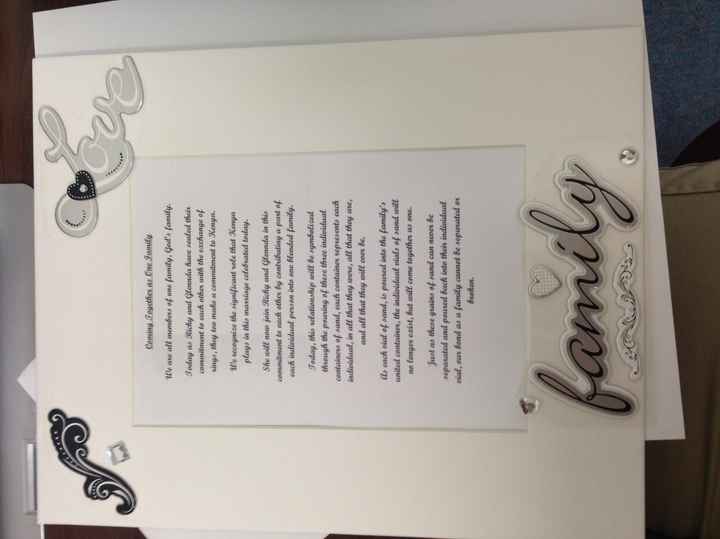 Love
Coming Together as One Family
We are all members of one family, God's family.
Today as Ricky and Glennda have sealed their
commitment to each other with the exchange of
rings, they too make a commitment to Kenya.
We recognize the significant role that Kenya
plays in this marriage celebrated today.
She will now join Ricky and Glennda in this
commitment to each other by contributing a part of
each individual person into one blended family.
Today, this relationship will be symbolized
through the pouring of these three individual
containers of sand, each container represents each
individual, in all that they were, all that they are,
and all that they will ever be.
As each vial of sand, is poured into the family's
united container, the individual vials of sand will
no longer exist, but will come together as one.
Just as these grains of sand can never be
separated and poured back into their individual
vial, our bond as a family cannot be separated or
broken.
family